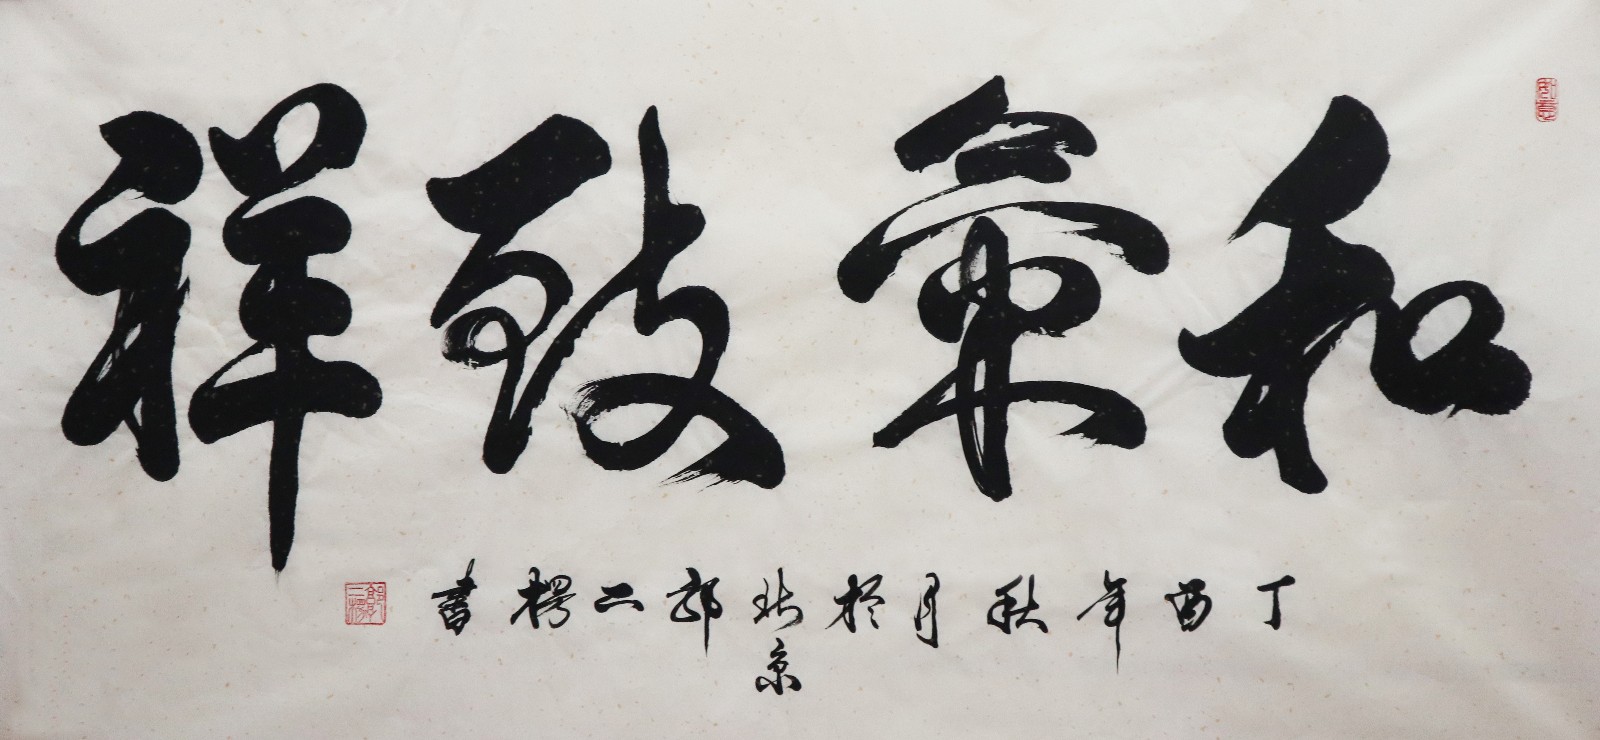 和氣致祥
丁酉年秋月於北京郭二楞書